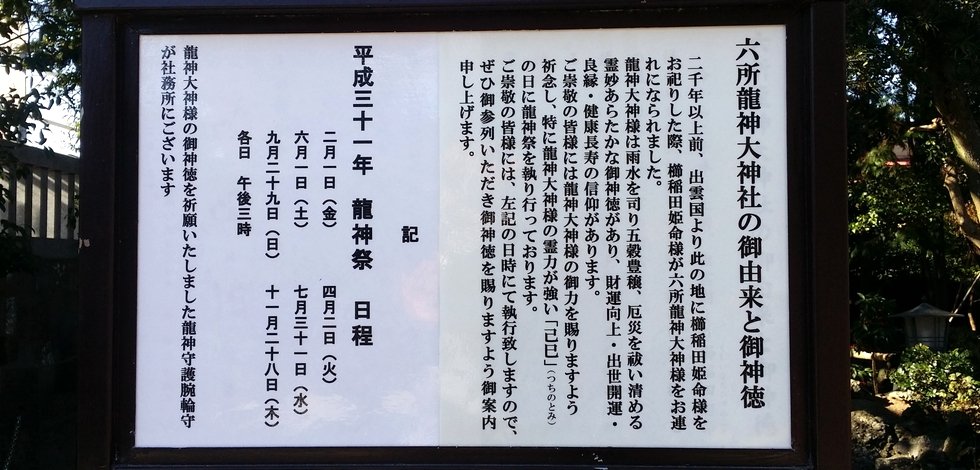 六所龍神大神社の御由来と御神徳
二千年以上前、出雲国より此の地に櫛稲田姫命様を
お祀りした際、櫛稲田姫命様が六所龍神大神様をお連
れになられました。
龍神大神様は雨水を司り五穀豊穣、厄災を祓い清める
霊妙あらたかな御神徳があり、財運向上・出世開運・
良縁・健康長寿の信仰があります。
ご崇敬の皆様には龍神大神様の御力を賜りますよう
祈念し、特に龍神大神様の霊力が強い「己巳」（つちのとみ）
の日に龍神祭を執り行っております。
ご崇敬の皆様には、左記の日時にて執行致しますので、
ぜひ御参列いただき御神徳を賜りますよう御案内
申し上げます。
記
平成三十一年 龍神祭 日程
二月一日（金） 四月二日（火）
六月一日（土） 七月三十一日（水）
九月二十九日（日） 十一月二十八日（木）
各日 午後三時
龍神大神様の御神徳を祈願いたしました龍神守護腕輪守
が社務所にございます